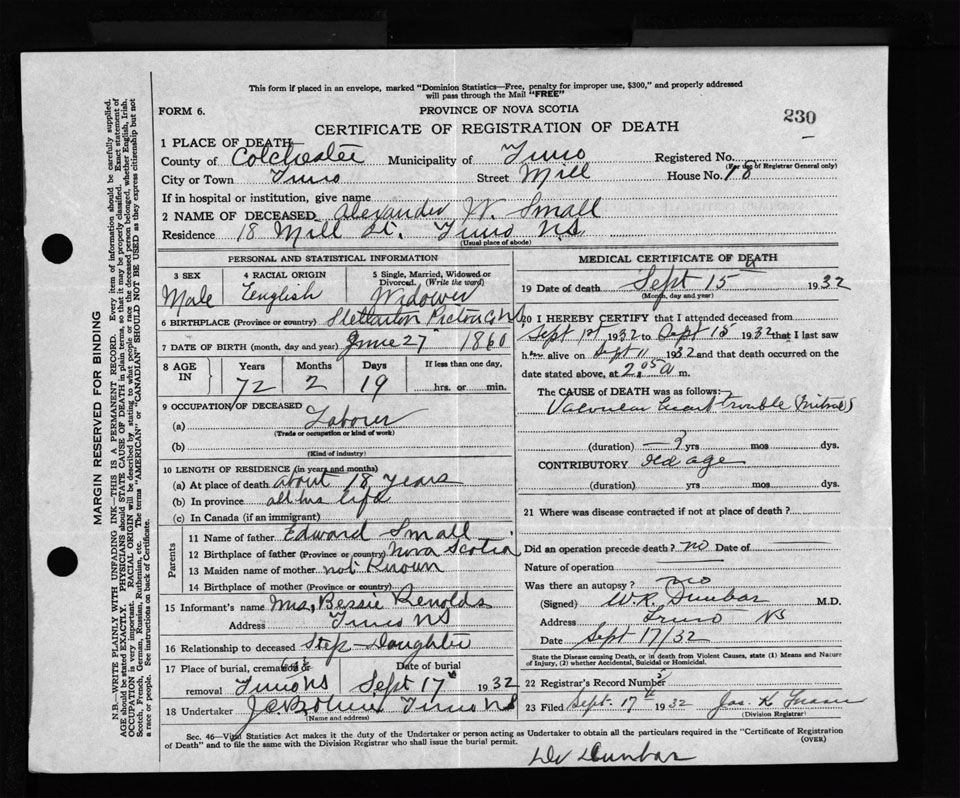 This form if placed in an envelope, marked "Dominion Statistics—Free, penalty for improper use, $300," and properly addressed
will pass through the Mail "FREE"
FORM 6.
PROVINCE OF NOVA SCOTIA
230
CERTIFICATE OF REGISTRATION OF DEATH
1 PLACE OF DEATH
County of Colchester Municipality of Truro Registered No.
(For use of Registrar General only)
City or Town Truro Street Mill House No. 18
If in hospital or institution, give name
2 NAME OF DECEASED Alexander W. Small
Residence 18 Mill St. Truro NS
(Usual place of abode)
PERSONAL AND STATISTICAL INFORMATION
3 SEX 4 RACIAL ORIGIN 5 Single, Married, Widowed or Divorced. (Write the word)
Male English Widower
6 BIRTHPLACE (Province or country) Stellarton Pictou Co NS
7 DATE OF BIRTH (month, day and year) June 27 1860
8 AGE IN Years Months Days If less than one day,
72 2 19 hrs. or min.
9 OCCUPATION OF DECEASED
(a) Laborer
(Trade or occupation or kind of work)
(b)
(Kind of industry)
10 LENGTH OF RESIDENCE (in years and months)
(a) At place of death about 18 years
(b) In province all his life
(c) In Canada (if an immigrant)
Parents
11 Name of father Edward Small
12 Birthplace of father (Province or country) Nova Scotia
13 Maiden name of mother not Known
14 Birthplace of mother (Province or country)
15 Informant's name Mrs. Bessie Renolds
Address Truro NS
16 Relationship to deceased Step-Daughter
17 Place of burial, cremation or Date of burial
removal Truro NS Sept 17th 1932
18 Undertaker Truro NS
(Name and address)
MEDICAL CERTIFICATE OF DEATH
19 Date of death Sept 15th 1932
(Month, day and year)
20 I HEREBY CERTIFY that I attended deceased from
Sept 1st 1932 to Sept 15 1932 that I last saw
him alive on Sept 11 1932 and that death occurred on the
date stated above, at 2.05 a m.
The CAUSE of DEATH was as follows:
Valvular heart trouble (Mitral)
(duration) 3 yrs mos dys.
CONTRIBUTORY old age
(duration) yrs mos dys.
21 Where was disease contracted if not at place of death?
Did an operation precede death? no Date of
Nature of operation
Was there an autopsy? no
(Signed) W.R. Dunbar M.D.
Address Truro NS
Date Sept 17/32
State the Disease causing Death, or in Death from Violent Causes, state (1) Means and Nature
of Injury, (2) whether Accidental, Suicidal or Homicidal.
22 Registrar's Record Number
23 Filed Sept. 17th 1932 Jas. K
(Division Registrar)
Sec. 46—Vital Statistics Act makes it the duty of the Undertaker or person acting as Undertaker to obtain all the particulars required in the "Certificate of Registration
of Death" and to file the same with the Division Registrar who shall issue the burial permit.
(OVER)
Dr Dunbar
MARGIN RESERVED FOR BINDING
N.B.—WRITE PLAINLY WITH UNFADING INK—THIS IS A PERMANENT RECORD. Every item of information should be carefully supplied.
AGE should be stated EXACTLY. PHYSICIANS should STATE CAUSE OF DEATH in plain terms, so that it may be properly classified. Exact statement of
OCCUPATION is very important. RACIAL ORIGIN will be described by stating to what people or race the deceased person belonged, whether English, Irish,
Scotch, French, German, Russian, Ruthenian, etc. The terms "AMERICAN" or "CANADIAN" SHOULD NOT BE USED as they express citizenship but not
a race or people. See instructions on back of Certificate.